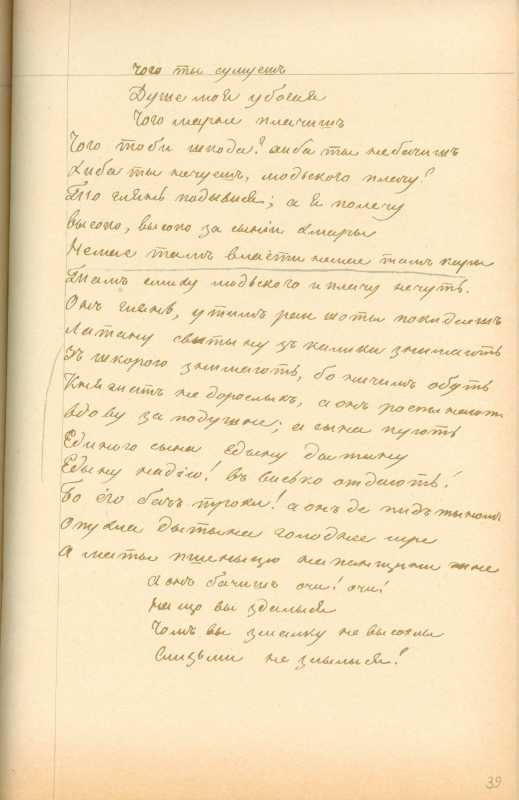 Чого ты сумуешъ
Душе моя убогая
Чого марне плачишъ
Чого тоби шкода? хиба ты не бачишъ
Хиба ты не чуешъ, людського плачу?
То глянь подывыся; а я полечу
высоко, высоко за сыніи хмары
Немае тамъ власти немае тамъ кары
Тамъ смиху людського и плачу нечуть.
Онъ глянь, у тимъ раи що ты покидаешъ
Латану свытыну зъ калики знимають
Зъ шкорого знимають, бо ничимъ обуть
Княжатъ недорослыхъ, а онъ роспынають
вдову за подушне; а сына кують
Единого сына едыну дытыну
Едыну надію! въ військо отдають!
Бо его бачъ трохи! а онъ де пидъ тыномъ
Опухла дытына голоднее мре
А маты пшеныцю на панщыни жне
А онъ бачишъ очи! очи!
На що вы здалыся
Чомъ вы змалку не высохлы
Слизьми не злылыся?
39